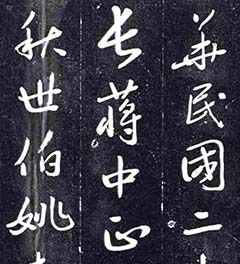 華民國二
長蔣中正
秋世伯姚